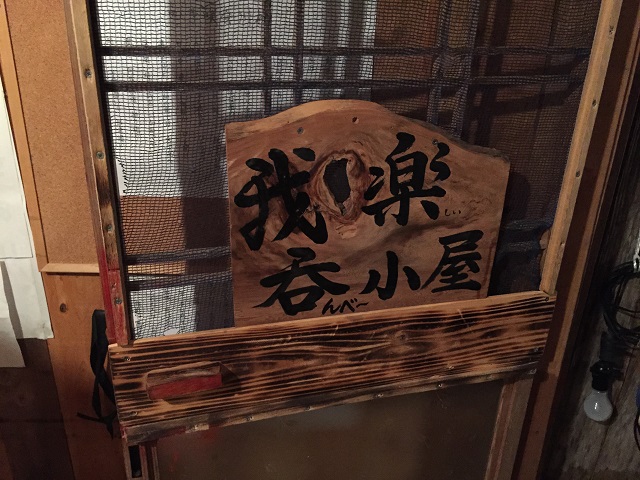 我楽しい
呑んべ〜小屋